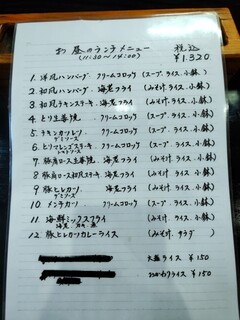 お昼のランチメニュー 税込
(11:30～14:00) ¥1,320
1 洋風ハンバーグ クリームコロッケ (スープ.ライス.小鉢)
2 和風ハンバーグ 海老フライ (みそ汁.ライス.小鉢)
3 和風チキンステーキ 海老フライ (みそ汁.ライス.小鉢)
4 とり生姜焼 クリームコロッケ (スープ.ライス.小鉢)
5 チキンカツレツ クリームコロッケ (スープ.ライス.小鉢)
デミソース
6 とりマレンゴステーキ クリームコロッケ (スープ.ライス.小鉢)
トマトソース
7 豚肩ロース生姜焼 海老フライ (みそ汁.ライス.小鉢)
8 豚肩ロース和風ステーキ 海老フライ (みそ汁.ライス.小鉢)
9 豚ヒレカツ クリームコロッケ (スープ.ライス.小鉢)
デミソース
10 メンチカツ クリームコロッケ (スープ.ライス.小鉢)
11 海鮮ミックスフライ (みそ汁.ライス.小鉢)
12 豚ヒレカツカレーライス (みそ汁.サラダ)
大盛ライス ¥150
おかわりライス ¥150